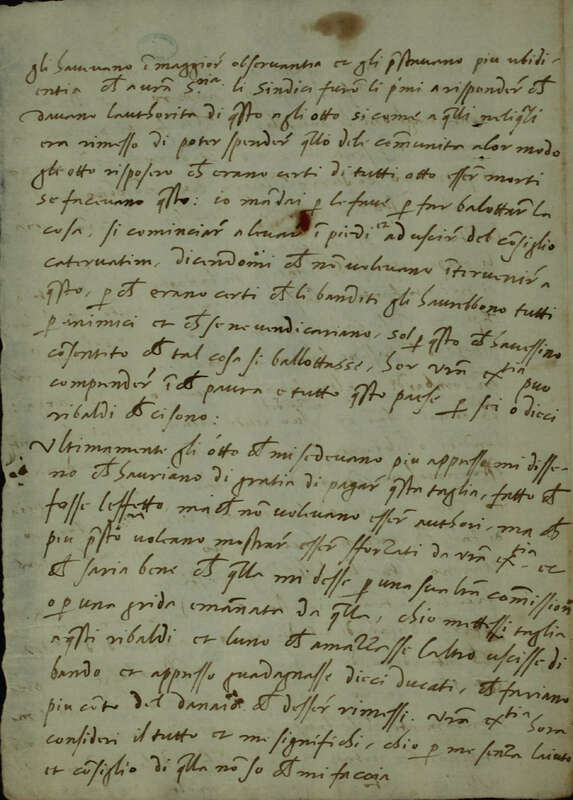 gli havevano ĩ maggior observantia et gli p̃stavano piu ubidi-
entia ch̃ a vr̃a S.ria li sindici furõ li p̃mi a risponder ch̃
davano lauthorita di q̃sto agli otto si come a q̃lli neliq̃li
era rimesso di poter spender q̃llo dele cõmunita a lor modo
gli otto risposero ch̃ erano certi di tutti otto esser morti
se facevano q̃sto: io mãdai p le fave p far balottar la
cosa, si cominciar a levar ĩ piedi et ad uscir del cõsiglio
catervatim, dicendomi ch̃ nõ volevano ĩtervenir a
q̃sto, p ch̃ erano certi ch̃ li banditi gli haurebbono tutti
p inimici et ch̃ se ne vendicariano, sol p q̃sto ch̃ havessino
cõsentito ch̃ tal cosa si ballottasse, hor vr̃a extia puo
compender ĩ ch̃ paura e tutto q̃sto paese p sei o dieci
ribaldi ch̃ ci sono:
Ultimamente gli otto ch̃ mi sedevano piu appresso mi disse-
no ch̃ hauriano di gratia di pagar q̃sta taglia, fatto ch̃
fosse leffetto, ma ch̃ nõ volevano esser authori, ma ch̃
piu p̃sto voleano mostrar esser sforzati da vr̃a extia et
ch̃ saria bene ch̃ q̃lla mi desse p una sua lr̃a cõmission
o p una grida emanata da q̃lla, chio mettessi taglia
a q̃sti ribaldi et luno ch̃ amazzasse laltro uscisse di
bando et appresso guadagnasse dieci ducati, ch̃ fariano
piu cõto del danaio ch̃ desser rimessi. vr̃a extia hora
consideri il tutto et me significhi, chio p me senza laiuto
et cõsiglio di q̃lla nõ so ch̃ mi faccia